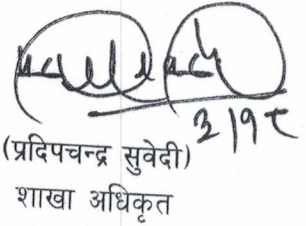 ३।१८
(प्रदिपचन्द्र सुवेदी)
शाखा अधिकृत